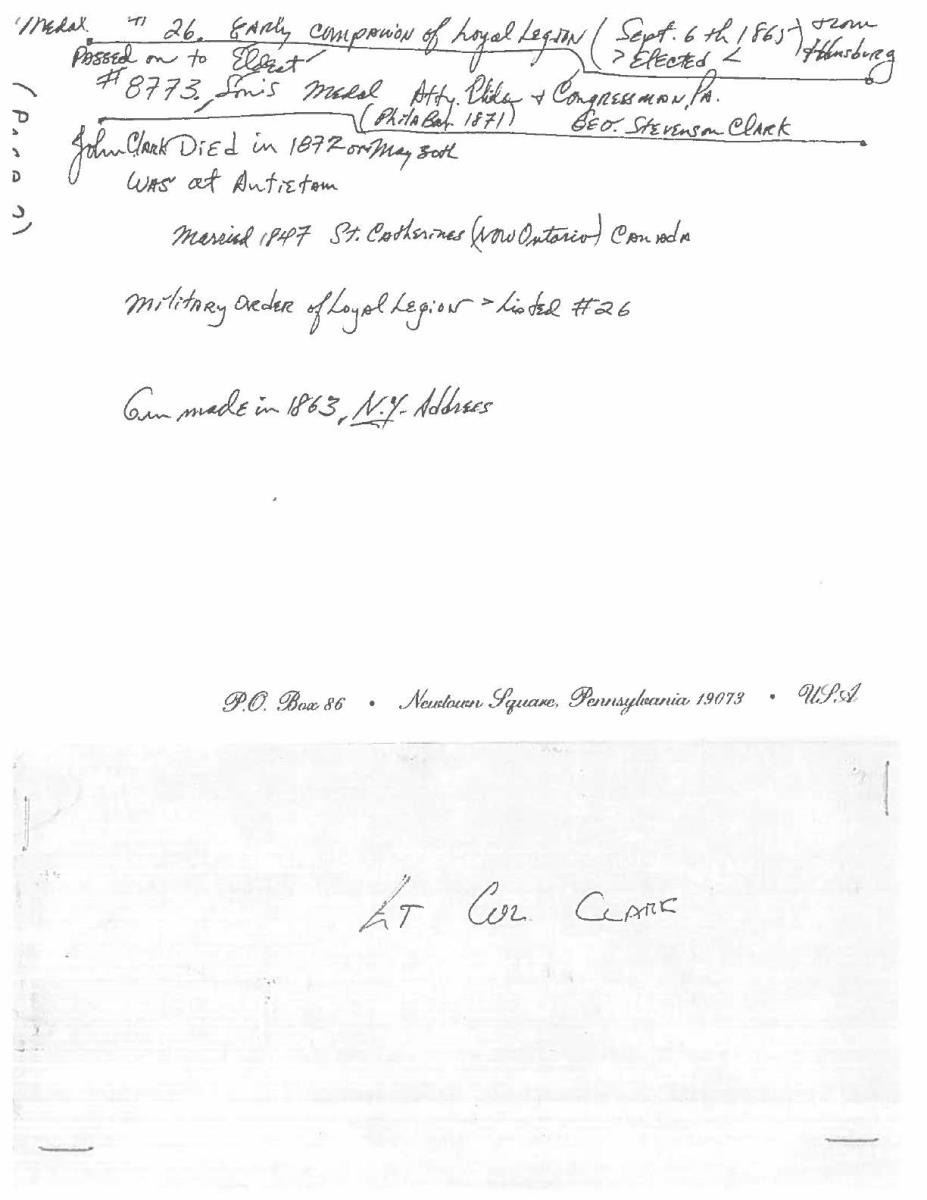 Medal # 26. Early Companion of Loyal Legion (Sept. 6th 1865) from
> Elected <
Passed on to Eldest
#8773. Son's Medal Atty. Phila + Congressman, Pa.
(Phila Bar 1871) Geo. Stevenson Clark
(Page 2)
John Clark Died in 1872 on May 30th
Was at Antietam
Married 1847 St. Catherines (Now Ontario) Canada
Military Order of Loyal Legion > Listed #26
Gun made in 1863, N.Y. Address
P.O. Box 86 • Newtown Square, Pennsylvania 19073 • USA
LT COL CLARK